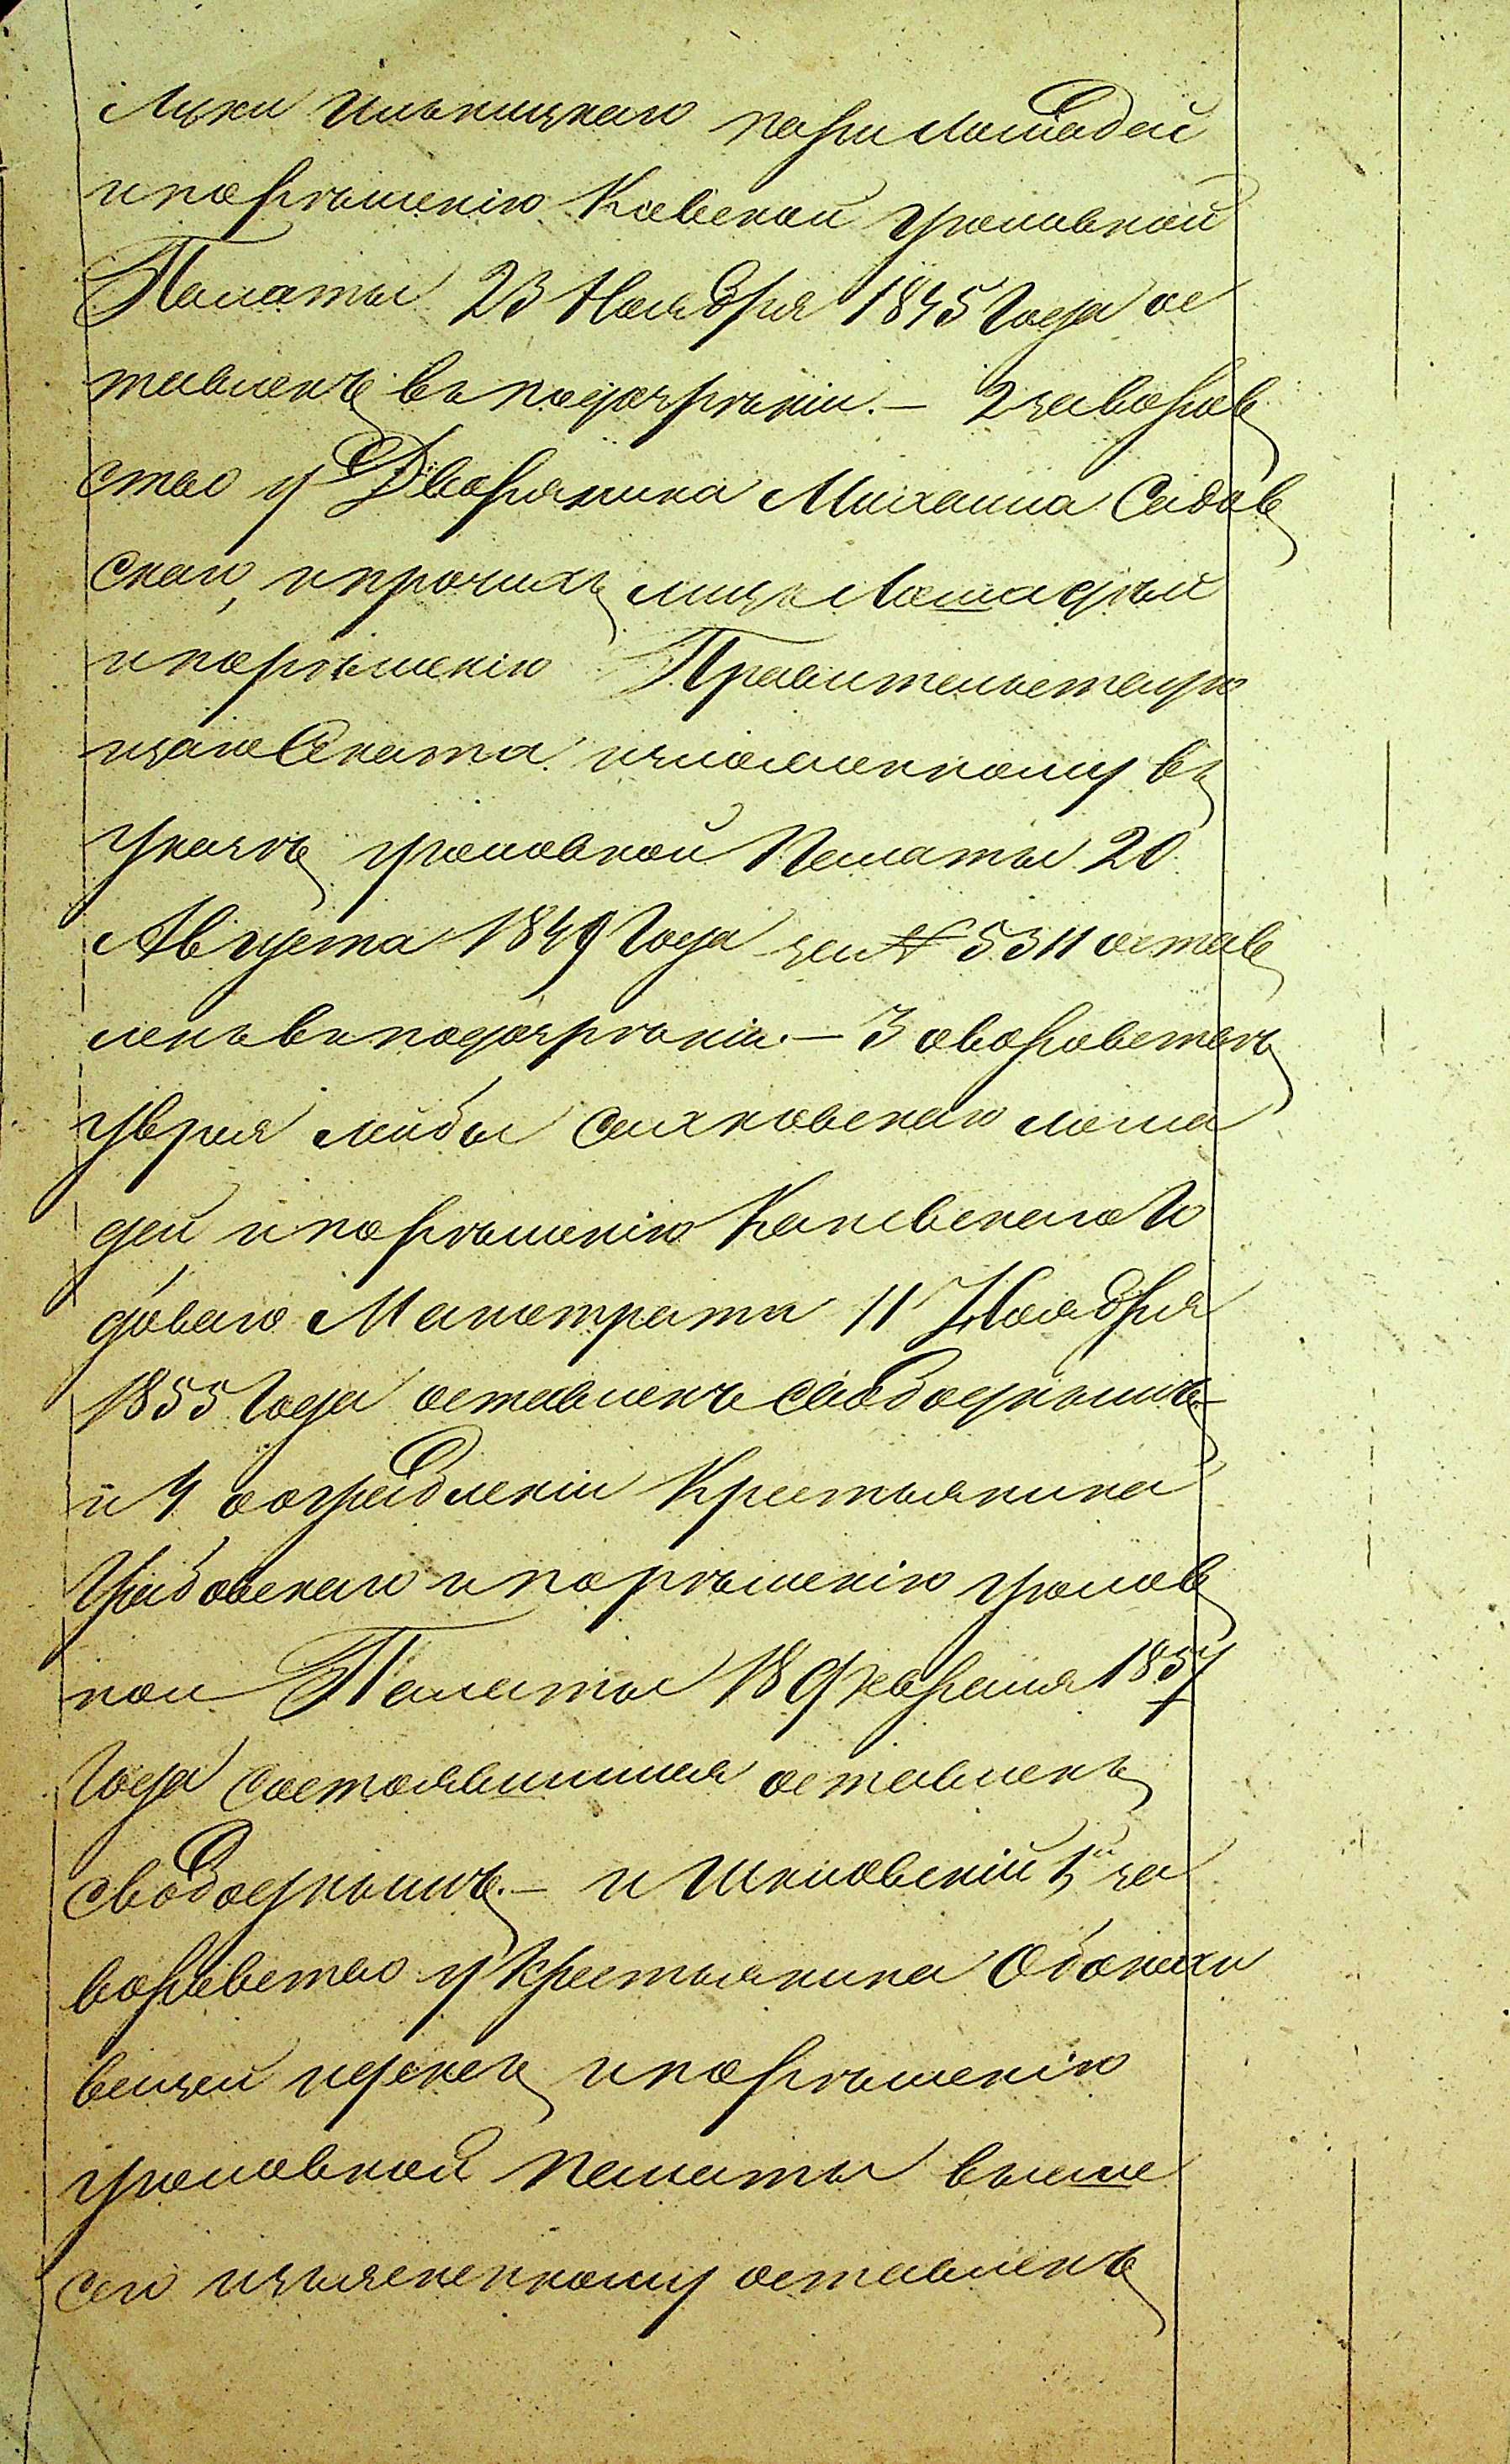 Луки Ильницкаго пары лошадей
и порѣшенію Кіевской уголовной
Палаты 23 Ноября 1845 Года ос
тавленъ въ подозрѣніи. – 2 за воров
ство у Дворянина Михаила Садов
скаго, и прочихъ лицъ Лошадѣй
и порѣшенію Правительствую
щаго Сената изложенному въ
Указѣ уголовной Палаты 20
Августа 1849 Года за № 5311 остав
ленъ въ подозрѣніи. – 3 о воровствѣ
Уврея Лейбы Сахновскаго лоша
дей и порѣшенію Каневскаго Го
доваго Магистрата 11 Ноября
1855 Года оставленъ свободнымъ –
и 4 о ограбленіи Крестьянина
Грабовскаго и порѣшенію уголов
ной Палаты 18 Февраля 1857
Года состоявшимся оставленъ
свободнымъ. – и Шкловскій 1й за
воровство у Крестьянина
вещей и денегъ и порѣшенію
уголовной Палаты выше
сего изъясненному оставленъ